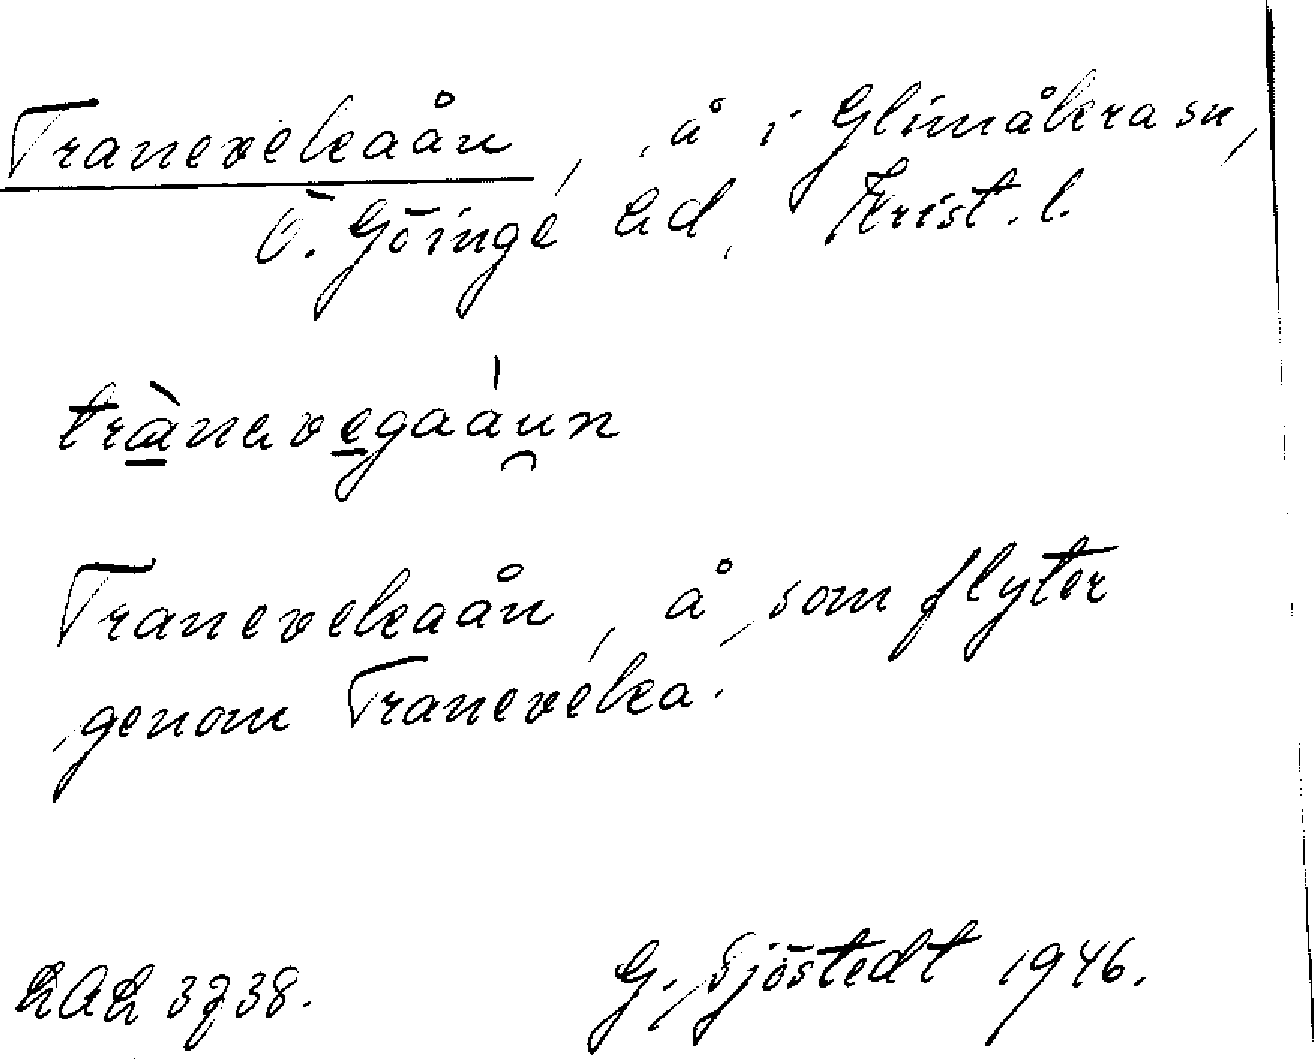 Tranevekaån, å i Glimåkra sn,
Ö. Göinge hd, Krist. l.
trànavegaáun
Tranevekaån, å, som flyter
genom Traneveka.
LAL 3738. G. Sjöstedt 1946.